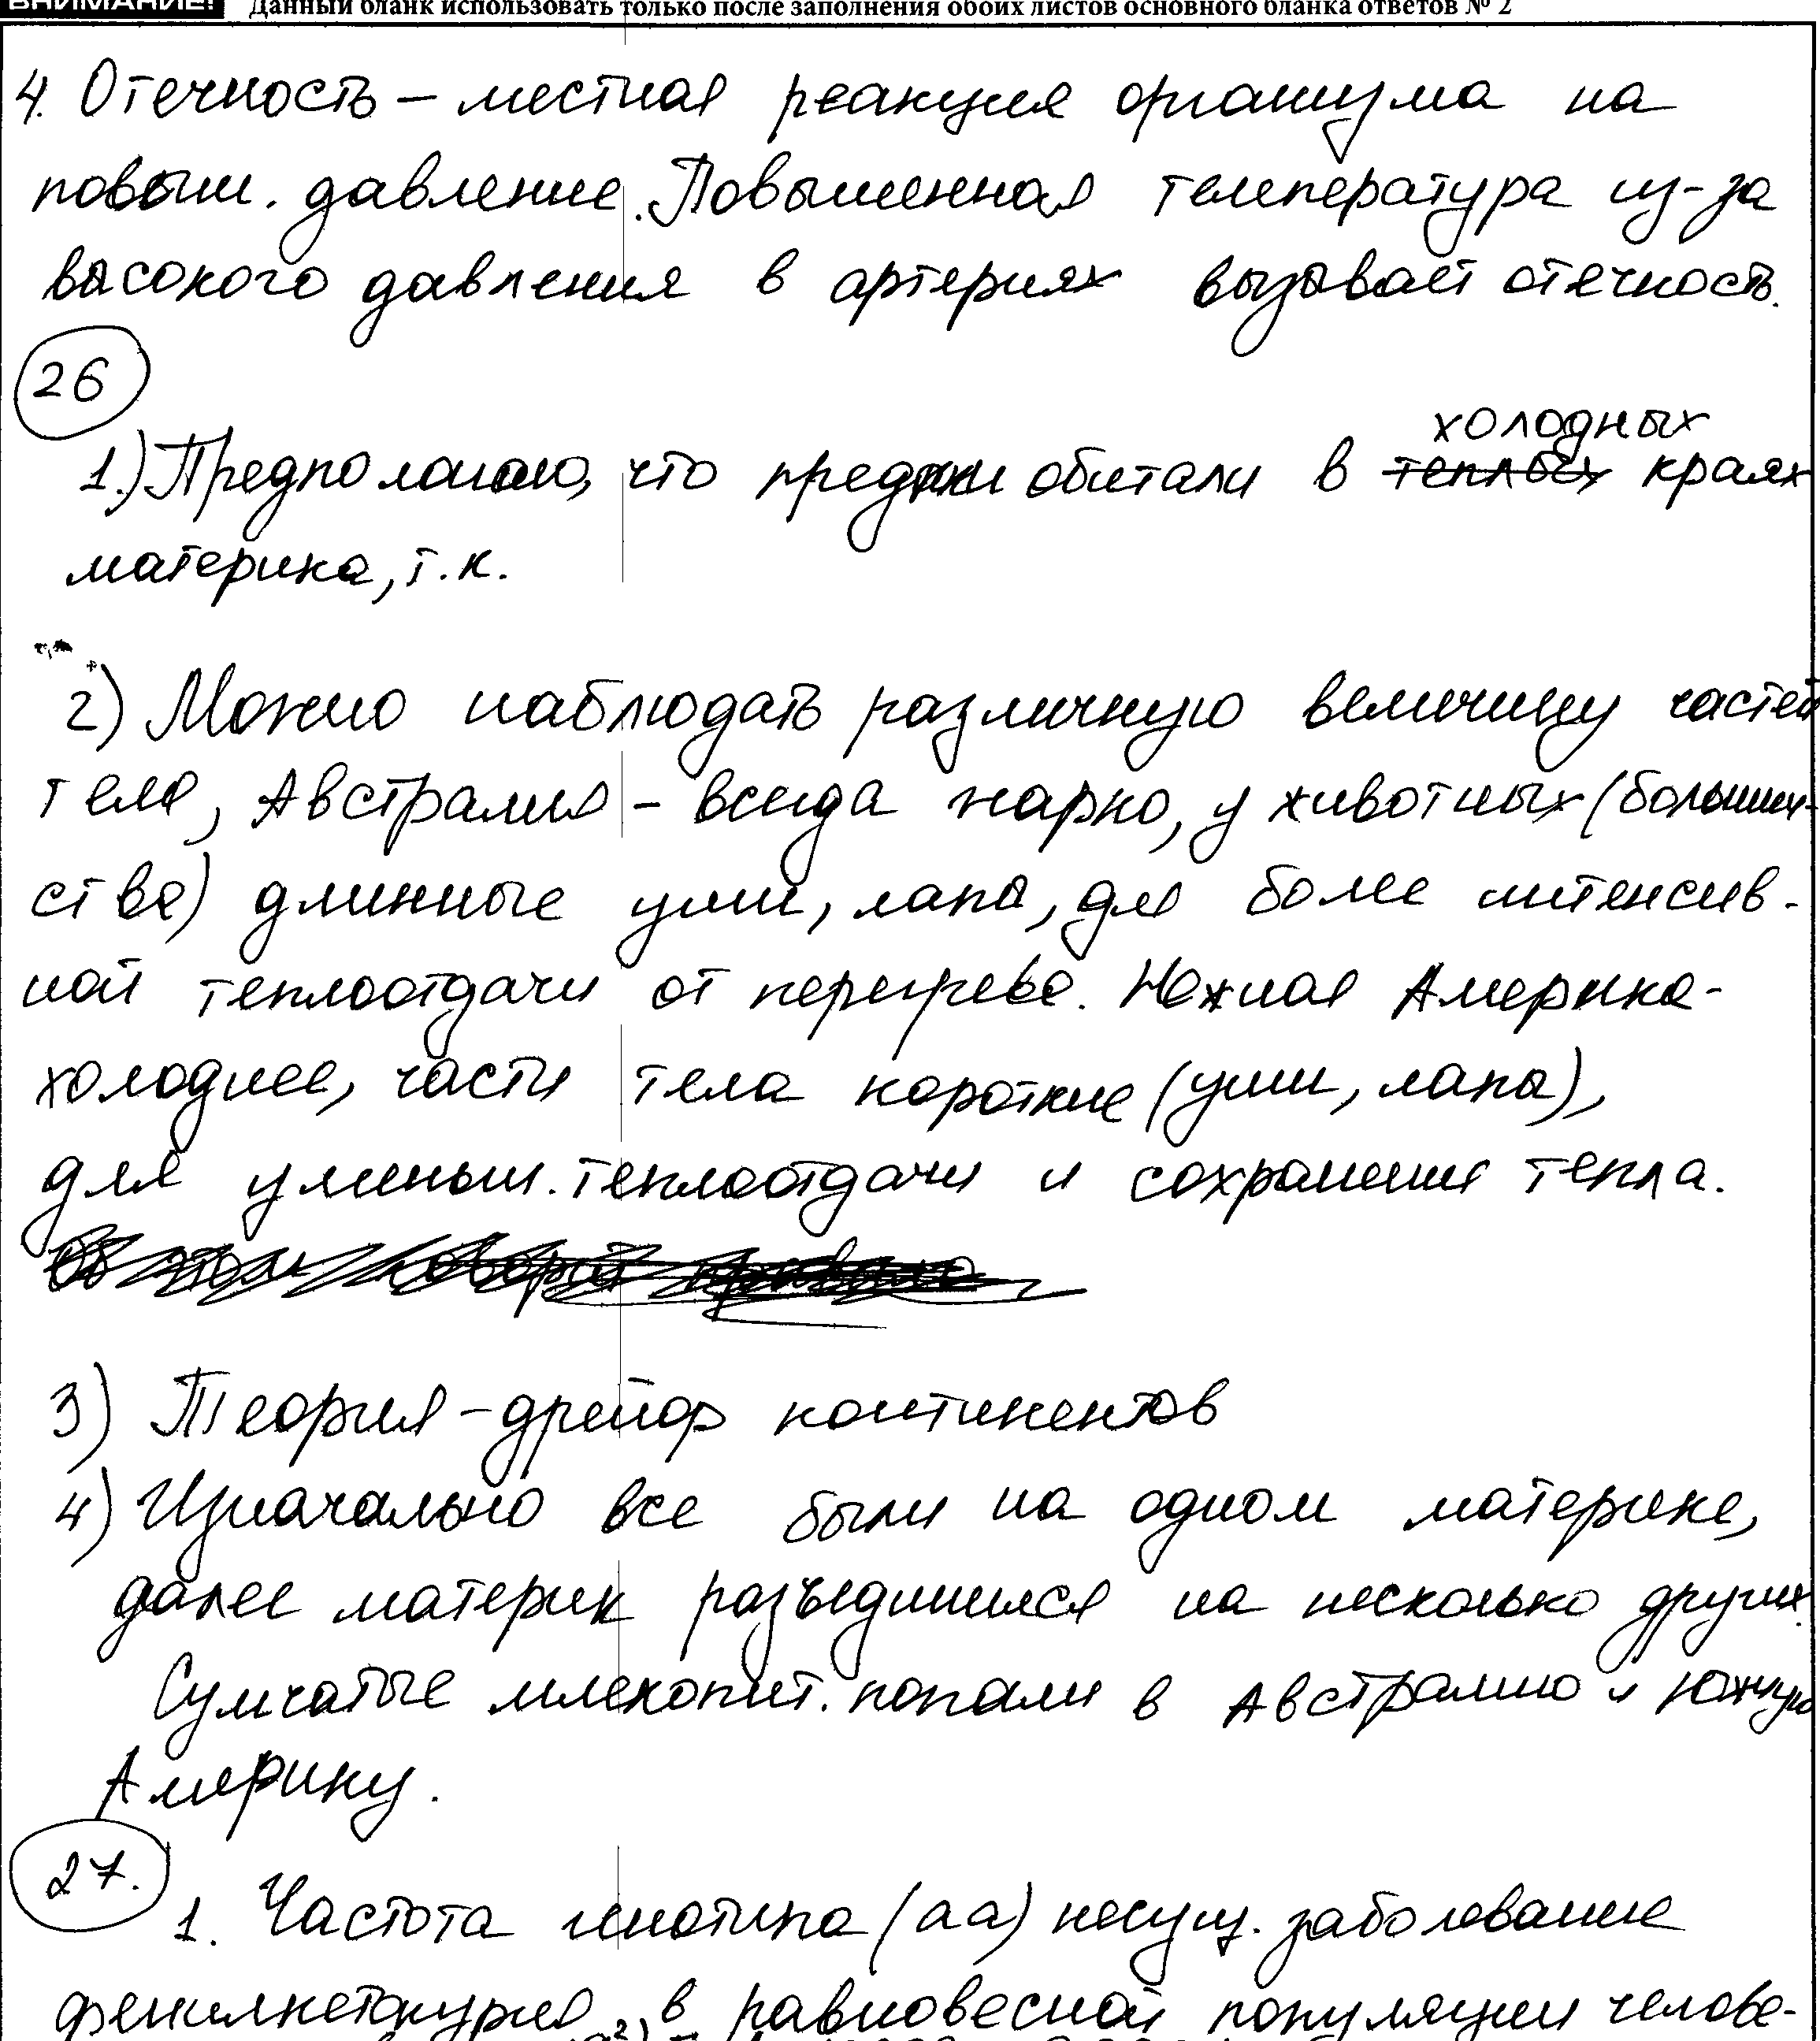 ВНИМАНИЕ! Данный бланк использовать только после заполнения обоих листов основного бланка ответов № 2
4. Отечность – местная реакция организма на
повыш. давление. Повышенная температура из-за
высокого давления в артериях вызывает отечность.
26
1.) Предполагаю, что предки обитали в теплых холодных краях
материка, т.к.
2) Можно наблюдать различную величину частей
тела, Австралия – всегда жарко, у животных (большин-
ства) длинные уши, лапы, для более интенсив-
ной теплоотдачи от перегрева. Южная Америка-
холоднее, части тела короткие (уши, лапы),
для уменьш. теплоотдачи и сохранения тепла.
3) Теория – дрейф континентов
4) Изначально все были на одном материке,
далее материк разъединился на несколько других.
Сумчатые млекопит. попали в Австралию и Южную
Америку.
27.
1. Частота генотипа (аа) несущ. заболевание
фенилкетонурия в равновесной популяции челове-